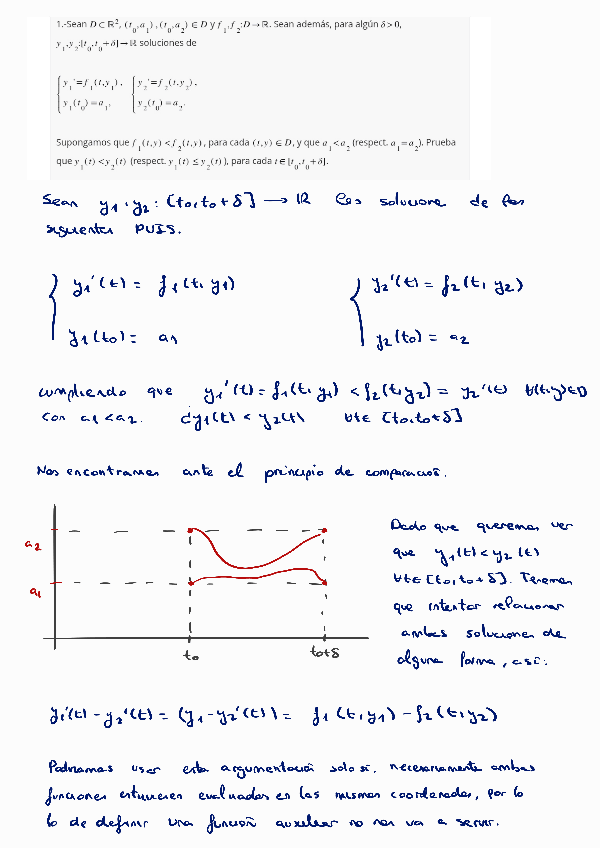 1.-Sean D ⊂ ℝ², (t₀,a₁), (t₀,a₂) ∈ D y f₁, f₂: D → ℝ. Sean además, para algún δ > 0,
y₁,y₂:[t₀,t₀+δ] → ℝ soluciones de
{ y₁'=f₁(t,y₁), { y₂'=f₂(t,y₂),
y₁(t₀)=a₁, y₂(t₀)=a₂.
Supongamos que f₁(t,y) < f₂(t,y), para cada (t,y) ∈ D, y que a₁ < a₂ (respect. a₁ = a₂). Prueba
que y₁(t) < y₂(t) (respect. y₁(t) ≤ y₂(t)), para cada t ∈ [t₀,t₀+δ].
Sean y1, y2 : [to, to+δ] → ℝ las solucione de los
siguientes PVIS.
{ y1'(t) = f1(t, y1) { y2'(t) = f2(t, y2)
y1(to) = a1 y2(to) = a2
cumpliendo que y1'(t) = f1(t, y1) < f2(t, y2) = y2'(t) ∀(t,y)∈D
con a1 < a2. ¿y1(t) < y2(t) ∀t∈ [to, to+δ]
Nos encontramos ante el principio de comparación.
a2
a1
to
to+δ
Dado que queremos ver
que y1(t) < y2(t)
∀t∈ [to, to+δ]. Tenemos
que intentar relacionar
ambas soluciones de
alguna forma, así:
y1'(t) - y2'(t) = (y1 - y2'(t)) = f1(t, y1) - f2(t, y2)
Podríamos usar esta argumentación solo si, necesariamente ambas
funciones estuviesen evaluadas en las mismas coordenadas, por lo
lo de definir una función auxiliar no nos va a servir.